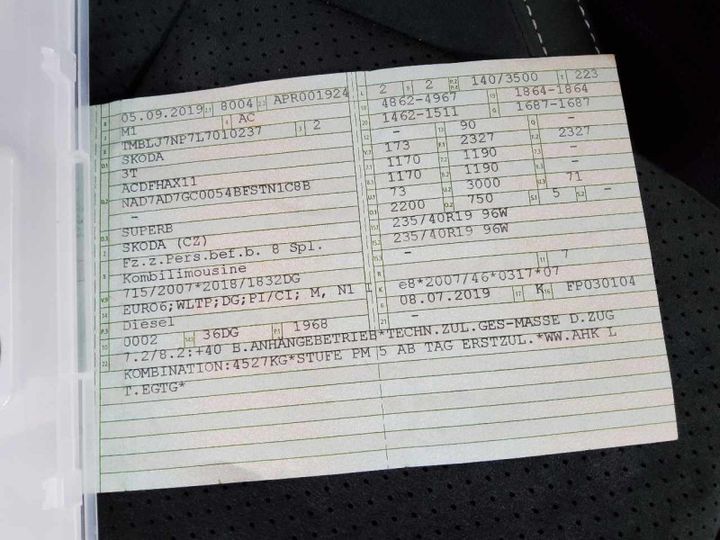 05.09.2019 8004 APR001924
M1 AC
TMBLJ7NP7L7010237 2
SKODA
3T
ACDFHAX11
NAD7AD7GC0054BFSTN1C8B
-
SUPERB
SKODA (CZ)
Fz.z.Pers.bef.b. 8 Spl.
Kombilimousine
715/2007*2018/1832DG
EURO6;WLTP;DG;PI/CI; M, N1 I
Diesel
0002 36DG 1968
2 2 140/3500 223
4862-4967 1864-1864
1462-1511 1687-1687
- 90 -
173 2327 2327
1170 1190 -
1170 1190 -
73 3000 71
2200 750 5 -
235/40R19 96W
235/40R19 96W
- 7
e8*2007/46*0317*07
08.07.2019 K FP030104
-
7.2/8.2:+40 B.ANHÄNGEBETRIEB*TECHN.ZUL.GES-MASSE D.ZUG
KOMBINATION:4527KG*STUFE PM 5 AB TAG ERSTZUL.*WW.AHK L
T.EGTG*